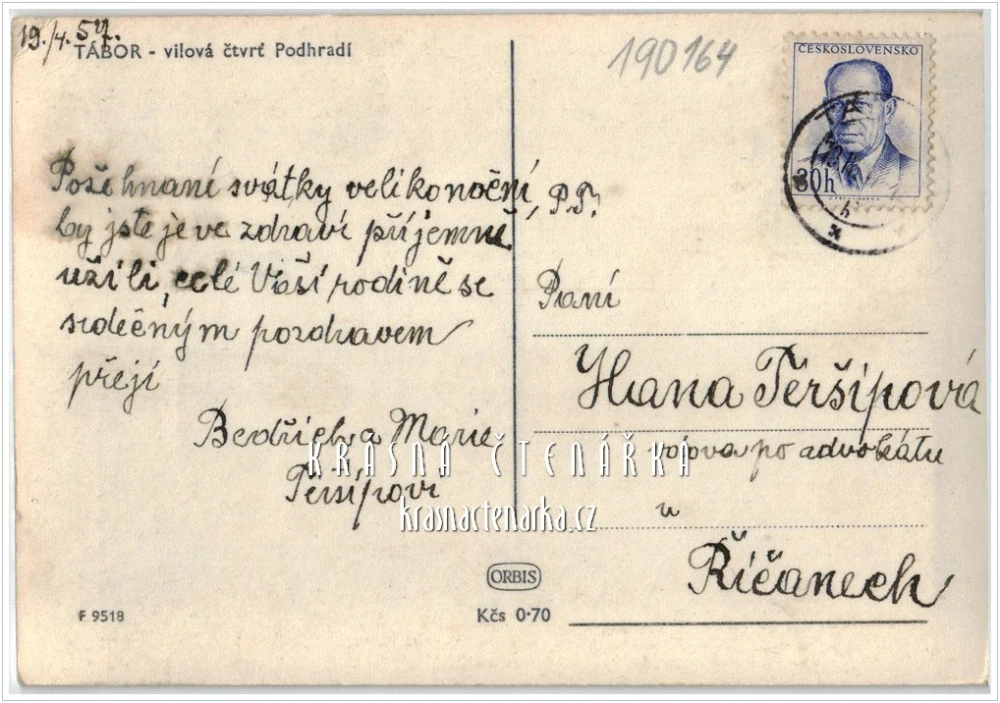 19./4. 57.
TÁBOR - vilová čtvrť Podhradí
190164
ČESKOSLOVENSKO
30h
Požehnané svátky velikonoční,
by jste je ve zdraví příjemně
užili, celé Vaší rodině se
srdečným pozdravem
přejí
Bedřich a Marie
Peršípovi
P.T.
Paní
Hana Peršípová
vdova po advokátu
v
Říčanech
KRÁSNÁ ČTENÁŘKA
krasnactenarka.cz
ORBIS
F 9518
Kčs 0·70